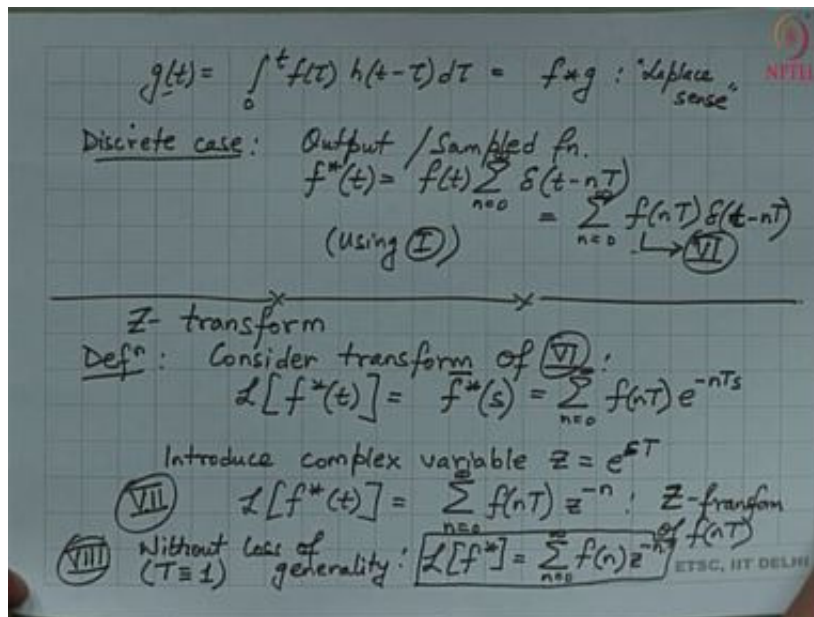 g(t) = ∫₀ᵗ f(τ) h(t-τ) dτ = f*g : "Laplace sense"
NPTEL
Discrete case: Output / Sampled fn.
f*(t) = f(t) ∑_{n=0}^∞ δ(t-nT)
= ∑_{n=0}^∞ f(nT) δ(t-nT)
(using Ⓘ) ↳ VI
Z- transform
Defⁿ: Consider transform of VI :
ℒ[f*(t)] = f̄*(s) = ∑_{n=0}^∞ f(nT) e^{-nTs}
Introduce complex variable z = e^{sT}
VII ℒ[f*(t)] = ∑_{n=0}^∞ f(nT) z^{-n} : Z-transfom of f(nT)
VIII Without loss of generality : ℒ[f*] = ∑_{n=0}^∞ f(n) z^{-n}
(T≡1)
ETSC, IIT DELHI